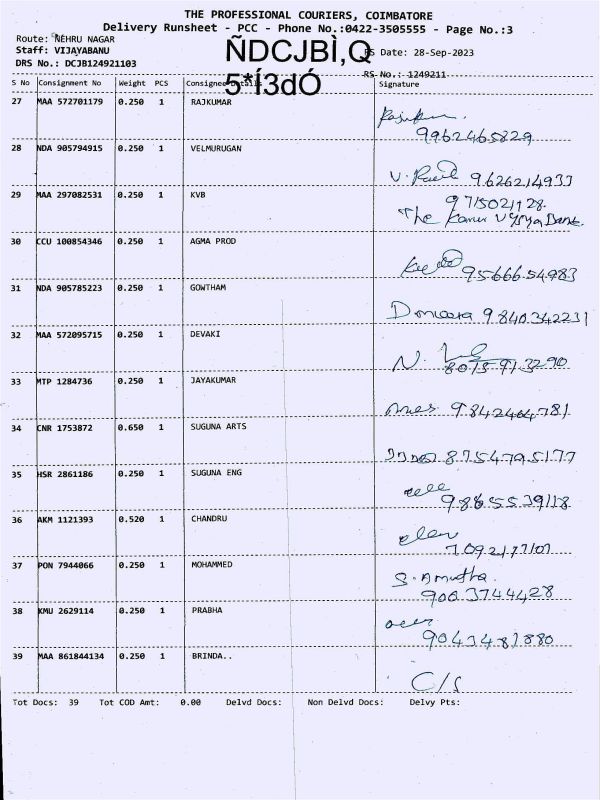 THE PROFESSIONAL COURIERS, COIMBATORE
Delivery Runsheet - PCC - Phone No.:0422-3505555 - Page No.:3
Route: NEHRU NAGAR
Staff: VIJAYABANU
DRS No.: DCJB124921103
ÑDCJBÌ,Q
5*Í3dÓ
RS Date: 28-Sep-2023
RS No.: 1249211
S No Consignment No Weight PCS Consignee Details Signature
27 MAA 572701179 0.250 1 RAJKUMAR
9962465829
28 NDA 905794915 0.250 1 VELMURUGAN
9626214933
29 MAA 297082531 0.250 1 KVB
9715021128
The Karur Vysya Bank
30 CCU 100854346 0.250 1 AGMA PROD
9566654983
31 NDA 905785223 0.250 1 GOWTHAM
9840342231
32 MAA 572095715 0.250 1 DEVAKI
N.
8075913290
33 MTP 1284736 0.250 1 JAYAKUMAR
9842464781
34 CNR 1753872 0.650 1 SUGUNA ARTS
8754795177
35 HSR 2861186 0.250 1 SUGUNA ENG
9865539118
36 AKM 1121393 0.520 1 CHANDRU
7092177107
37 PON 7944066 0.250 1 MOHAMMED
S. Amutha
9003744428
38 KMU 2629114 0.250 1 PRABHA
9043481880
39 MAA 861844134 0.250 1 BRINDA..
C/S
Tot Docs: 39 Tot COD Amt: 0.00 Delvd Docs: Non Delvd Docs: Delvy Pts: